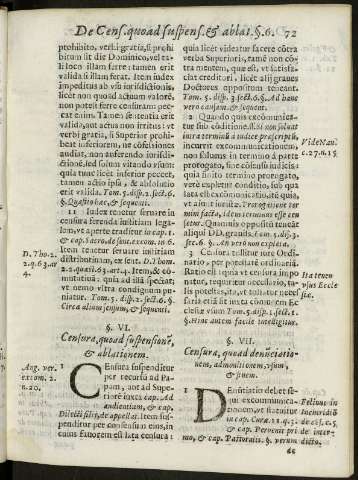 De Cens. quoad suspens. & ablat. §. 6. 72
prohibito, verbi gratia, si prohibitum
sit die Dominico, vel tali
loco illam ferre: tamen erit
valida si illam ferat. Item iudex
impeditus ab usu iurisdictionis,
licèt non quoad actum valorē,
non potest ferre censuram peccat
enim. Tamen sententia erit
valida, aut actus non irritus: vt
verbi gratia, si Superior prohibeat
inferiorem, ne cōfessiones
audiat, non auferendo iurisdictionē,
sed solum vtandū vsum:
quia tunc licèt inferior peccet,
tamen actio ipsa, & absolutio
erit valida. Tom. 5. disp. 2. sect. 6.
§. Quæstio hæc, & sequenti.
11 Iudex tenetur seruare in
censura ferenda iustitiam legalem,
vt aperte traditur in cap. 1.
& cap. sacro, de sent. excom. in 6.
Item tenetur seruare iustitiam
distributiuam, ex sent. D. Thom.
2. 2. quæst. 63. art. 4. Item, & cōmutatiua:
quia ad illā spectat;
vt nemo vltra condignum puniatur.
Tom. 5. disp. 2. sect. 6. §.
Circa alium ienjum, & sequenti.
D. Tho. 2.
2. q. 63. ar
4.
§. VI.
Censura, quoad suspensionē,
& ablationem.
Aug. ver.
excom. 2.
n. 20.
1 Censura suspenditur
per recursū ad Papam,
aut ad Superiorē
iuxta cap. Ad
audientiam, & cap.
Dilecti filij, de appellat. Item suspenditur
per consensum eius, in
cuius fauorem est lata censura:
quia licèt videatur facere cōtra
verba Superioris, tamē non cōtra
mentem, quæ est, vt satisfaciat
creditori, licèt alij graues
Doctores oppositum teneant.
Tom. 5. disp. 3. sect. 6. §. Ad hanc
vero causam, & sequent.
2 Quando quis excommunicatur
sub cōditione, Nisi non soluat
intra terminū à iudice præscriptū,
incurrit excommunicationem,
non soluens in termino à parte
prorogato, sine consensu iudicis
quia finito termino prorogato
verè expletur conditio, sub qua
lata est excōmunicatio, ità quia
vt aiunt iuristæ. Prorogatione termini
facta, idem terminus esse censetur.
Quamuis oppositū teneāt
aliqui DD. grauis. Tom. 5. disp. 3.
sec. 6. §. An verò non expleta.
Vide Nau.
c. 27. n. 15
3 Censura tollitur iure Ordinario,
per potestatē ordinariā.
Ratio est: quia vt censura imponatur,
requiritur, necessariò, &
ideo vt tollatur, potestas necessaria
etiā est iuxta communem Ecclesiæ
vsum. Tom. 5. disp. 7. sec. 1. §.
Hinc autem facilè intelligitur.
Ita tenet
vsus Eccle
siæ.
§. VII.
Censura, quoad denūtiationem,
admonitionem, vsum,
& finem.
1 Denūtiatio debet sequi
excommunicationem,
vt statuitur
in cap. Curæ. 11. q. 3.
& cap. Peruenit primo,
& cap. Pastoralis. §. verum
de